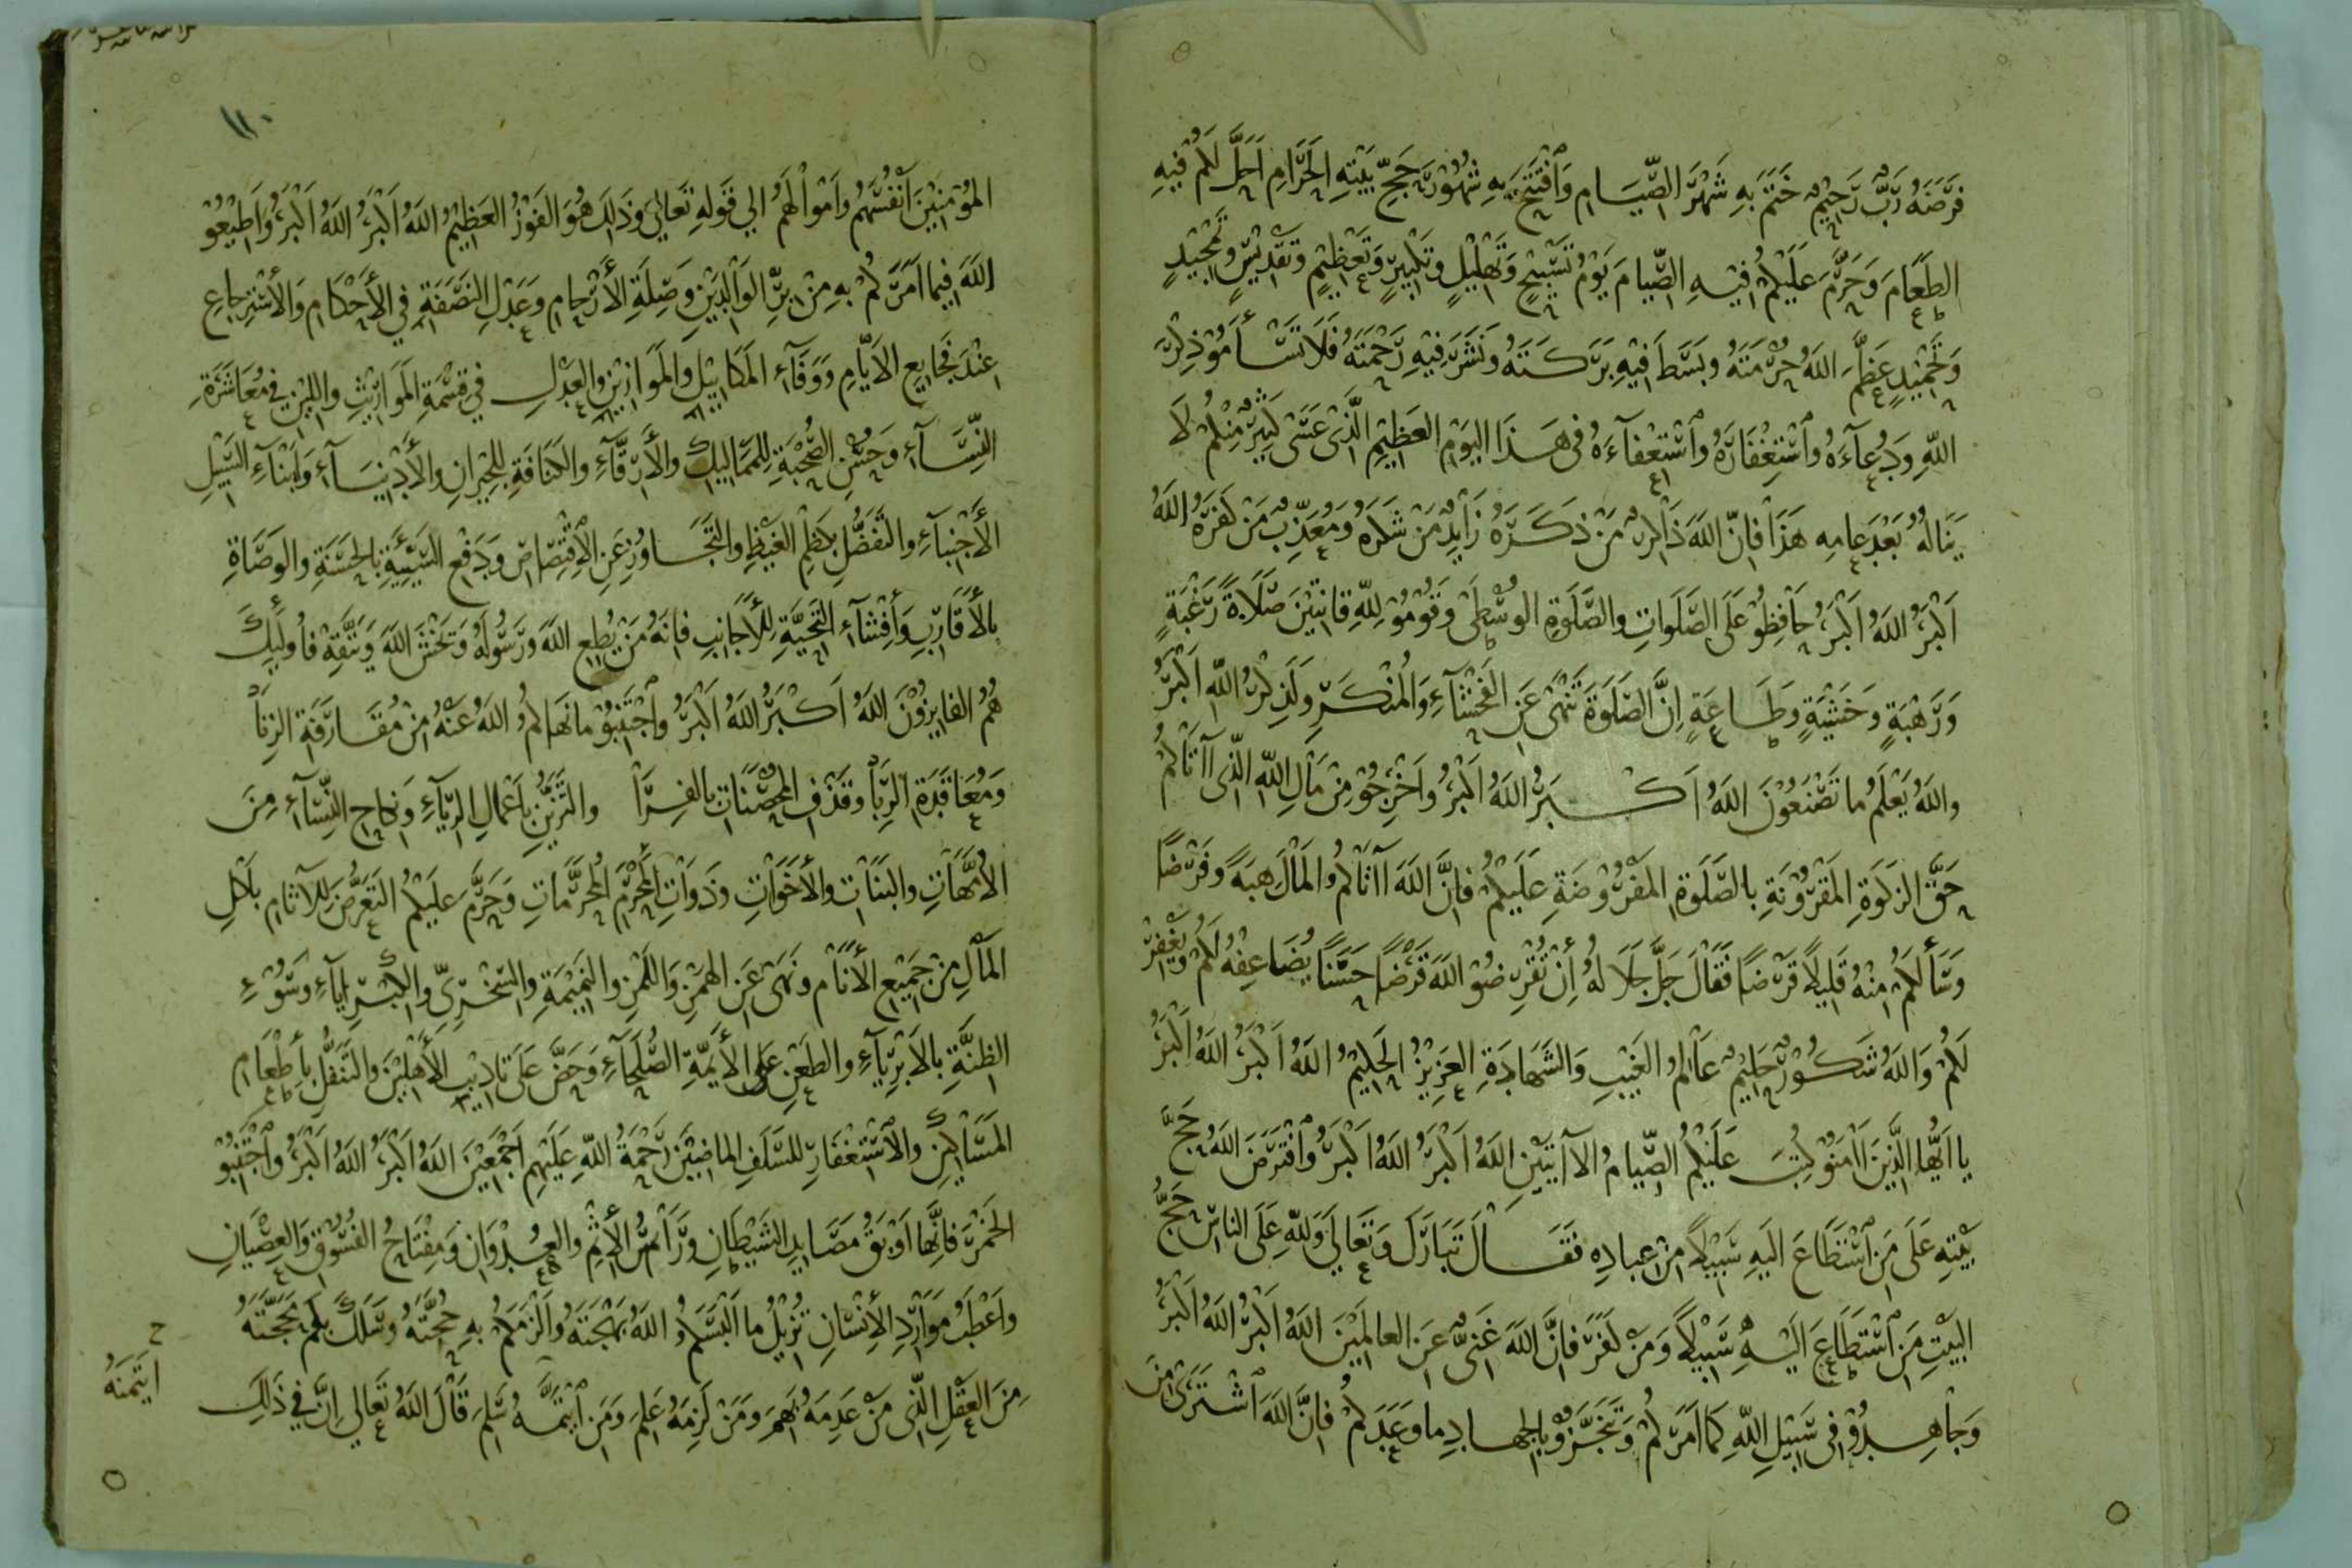 فَرَضَهُ رَبٌّ رَحِيْمٌ خَتَمَ بِهِ شَهْرَ الصِّيَامِ وَٱفْتَتَحَ بِهِ شُهُوْرَ حَجِّ بَيْتِهِ الحَرَامِ اَحَلَّ لَكُمْ فِيْهِ
الطَعَامَ وَحَرَّمَ عَلَيْكُمْ فِيْهِ الصِّيَامَ يَوْمُ تَسْبِيْحٍ وَتَهْلِيْلٍ وتَكْبِيْرٍ وَتَعْظِيْمٍ وتَقْدِيْسٍ وتَمْجِيْدٍ
وَتَحْمِيْدٍ عَظَّمَ اللهُ حُرْمَتَهُ وبَسَطَ فِيْهِ بَرَكَتَهُ ونَشَرَ فِيْهِ رَحْمَتَهُ فَلَا تَسْأَمُوْ ذِكْرَ
اللهِ وَدُعَآءَهُ وَٱسْتِغْفَارَهُ وَٱسْتِعْفَآءَهُ فى هَذَا اليَوْمِ العَظِيْمِ الَّذِى عَسَى كَثِيْرٌ مِنْكُمْ لَا
يَنَالُهُ بَعْدَ عَامِهِ هَذَا فَانَّ اللهَ ذَاكِرٌ مَنْ ذَكَرَهُ زَايِدٌ مَنْ شَكَرَهُ وَمُعَذِّبٌ مَنْ كَفَرَهُ اللهُ
اَكْبَرُ اللهُ اَكْبَرُ حَافِظُوْ عَلَى الصَّلَوَاتِ والصَّلَوةِ الوُسْطَى وقُوْمُوْ لِلهِ قَانِتِيْنَ صَلَاةً رَغْبَةٍ
وَرَهْبَةٍ وَخَشْيَةٍ وَطَاعَةٍ اِنَّ الصَلَوةَ تَنْهَى عَنِ الفَحْشَآءِ وَالمُنْكَرِ وَلَذِكْرُ اللهِ اَكْبَرُ
واللهُ يَعْلَمُ ما تَصْنَعُوْنَ اللهُ اَكْبَرُ اللهُ اَكْبَرُ وَاَخْرِجُوْ مِنْ مَالِ اللهِ الَّذِى اٰتَاكُمْ
حَقَّ الزكَوةِ المَقْرُوْنَةِ بالصَّلَوةِ المَفْرُوْضَةِ عَلَيْكُمْ فَاِنَّ اللهَ اٰتَاكُمُ المَالَ هِبَةً وفَرْضًا
وَسَأَلَكُمْ مِنْهُ قَلِيْلًا قَرْضًا فَقَالَ جَلَّ جَلَالهُ أِنْ تُقْرِضُوْ اللهَ قَرْضًا حَسَنًا يُضَاعِفْهُ لَكُمْ وَيَغْفِرْ
لَكُمْ وَاللهُ شَكُوْرٌ حَلِيْمٌ عَالِمُ الغَيْبِ وَالشَهَادَةِ العَزِيْزُ الحَكِيْمُ اللهُ اَكْبَرُ اللهُ اَكْبَرُ
يا اَيُّهَا الذِّيْنَ اٰمَنُوْ كُتِبَ عَلَيْكُمُ الصِّيَامُ الآيَتَيْنِ اللهُ اَكْبَرُ اللهُ اَكْبَرُ وَٱفْتَرَضَ اللهُ حَجَّ
بَيْتِهِ عَلَى مَنِ ٱسْتَطَاعَ اليَهِ سَبِيْلًا مِنْ عِبادِهِ فَقَالَ تَبَارَكَ وَتَعَالَى وَلِلهِ عَلَى الناسِ حَجُّ
البَيْتِ مَنِ ٱسْتَطَاعَ اِلَيْهِ سَبِيْلًا وَمَنْ كَفَرَ فاِنَّ اللهَ غَنِىٌّ عَنِ العالَمِيْنَ اللهُ اَكْبَرُ اللهُ اَكْبَرُ
وَجاهِدُوْ فى سَبِيْلِ اللهِ كَمَا اَمَرَكُمْ وَتَنَجَّزُوْ بالجهادِ ما وَعَدَكُمْ فَاِنَّ اللهَ ٱشْتَرَى مِنَ
١١٠
المُؤْمِنِيْنَ اَنْفُسَهُمْ وَاَمْوالَهُمْ اِلي قَوْلِهِ تَعَالَى وَذَلِكَ هُوَ الفَوْزُ العَظِيْمُ اللهُ اَكْبَرُ اللهُ اَكْبَرُ وَاَطِيْعُوْ
اللهَ فِيْمَا اَمَرَكُمْ بِهِ مِنْ بِرِّ الوَالِدَيْنِ وَصِلَةِ الأَرْحَامِ وَعَدْلِ النَصَفَةِ فِي الأَحْكَامِ وَالأسْتِرْجاعِ
عِنْدَ فَجَايِعِ الاَيَّامِ وَوَفَآءِ المَكَايِيْلِ والمَوَازِيْنِ والعَدْلِ فِي قِسْمَةِ المَوَارِيْثِ واللِيْنِ فِي مُعَاشَرَةِ
النِّسَآءِ وَحُسْنِ الصُحْبَةِ لِلمَمَالِيْكِ والأَرِقَّآءِ والكَنَافَةِ لِلجِيْرَانِ والأَدْنِيَآءِ وَابْنَآءِ السَبِيْلِ
الأَجْنِبَآءِ والتَفَضُّلِ بِكَظْمِ الغَيْظِ والتَجَاوُزِ عَنِ الأقْتِصَاصِ وَدَفْعِ السَيِّئَةِ بِالحَسَنَةِ والوَصَاةِ
بِالأَقَارِبِ وَأِفْشَآءِ التَحِيَّةِ لِلأَجَانِبِ فَاِنَّهُ مَنْ يُطِعِ اللهَ وَرَسُولَهُ وَيَخْشَ اللهَ وَيَتَّقِهْ فَأُولَئِكَ
هُمُ الفَايِزُوْنَ اللهُ اَكْبَرُ اللهُ اَكْبَرُ وٱجْتَنِبُوْ ما نَهَاكُمُ اللهُ عَنْهُ مِنْ مُقَارَفَةِ الزِنَا
وَمُعَاقَدَةِ الرِبَا وقَذْفِ المُحْصَنَاتِ بالفِرَا والتَزَيُّنِ بِاَعْمَالِ الرِيَآءِ وَنِكاحِ النِّسَآءِ مِنَ
الاُمَّهَاتِ والبَنَاتِ والأَخَوَاتِ وذَوَاتِ المَحْرَمِ المُحَرَّمَاتِ وَحَرَّمَ عَلَيْكُمُ التَعَرُّضَ لِلآثَامِ بأَكْلِ
المَالِ مِنْ جَمِيْعِ الأَنَامِ ونَهَى عَنِ الهَمْزِ وَاللَمْزِ والنَمِيْمَةِ والسُخْرِىِّ والكِبْرِيآءِ وسُوْءِ
الظِنَّةِ بالاَبْرِيَآءِ والطَعْنِ عَلَى الأَيِمَّةِ الصُلَحَآءِ وَحَضَّ عَلَى تَادِيْبِ الأَهْلِيْنَ والتَنَفُّلِ بأِطْعَامِ
المَسَاكِيْنَ والأسْتِغْفَارِ للسَلَفِ الماضِيْنَ رَحْمَةُ اللهِ عَلَيْهِم اَجْمَعِيْنَ اللهُ اَكْبَرُ اللهُ اَكْبَرُ وٱجْتَنِبُوْ
الخَمْرَ فَاِنَّهَا اَوْبَقُ مَصَايِدِ الشَيْطَانِ ورَأسُ الأِثْمِ والعُدْوَانِ وَمِفْتَاحُ الفُسُوْقِ وَالعِصْيَانِ
واَعْطَبُ مَوَارِدِ الأِنْسَانِ تُزِيْلُ ما اَلْبَسَكُمُ اللهُ بَهْجَتَهُ واَلْزَمَكُمْ بِهِ حُجَّتَهُ وسَلَكَ بِكُمْ مَحَجَّتَهُ
مِنَ العَقْلِ الَّذِى مَنْ عَدِمَهُ بَهِمَ ومَنْ لَزِمَهُ عَلِمَ وَمَنِ ٱيْتَمَّهُ سَلِمَ قَالَ اللهُ تَعَالي اِنَّ فِي ذَلِكَ
ح
ايتَمَنَهُ